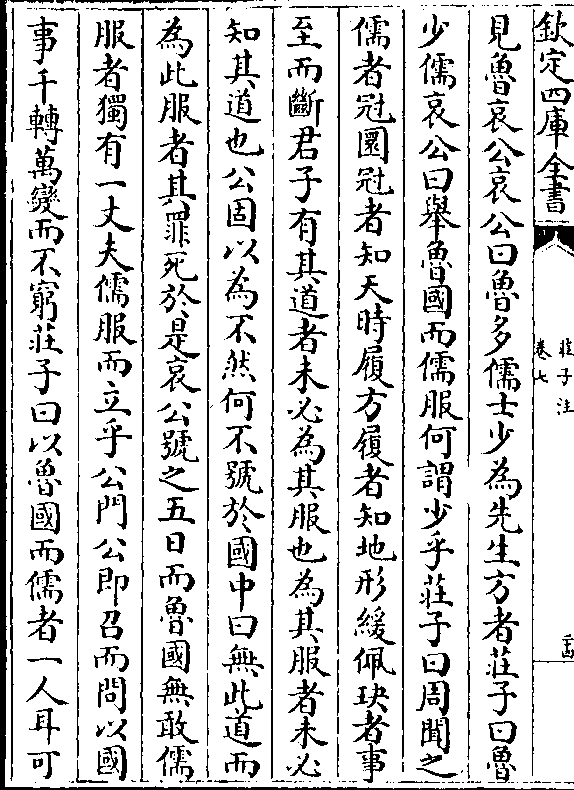 欽定四庫全書
莊子注
卷七
見魯哀公哀公曰魯多儒士少為先生方者莊子曰魯
少儒哀公曰舉魯國而儒服何謂少乎莊子曰周聞之
儒者冠圜冠者知天時履方履者知地形緩佩玦者事
至而斷君子有其道者未必為其服也為其服者未必
知其道也公固以為不然何不號於國中曰無此道而
為此服者其罪死於是哀公號之五日而魯國無敢儒
服者獨有一丈夫儒服而立乎公門公即召而問以國
事千轉萬變而不窮莊子曰以魯國而儒者一人耳可